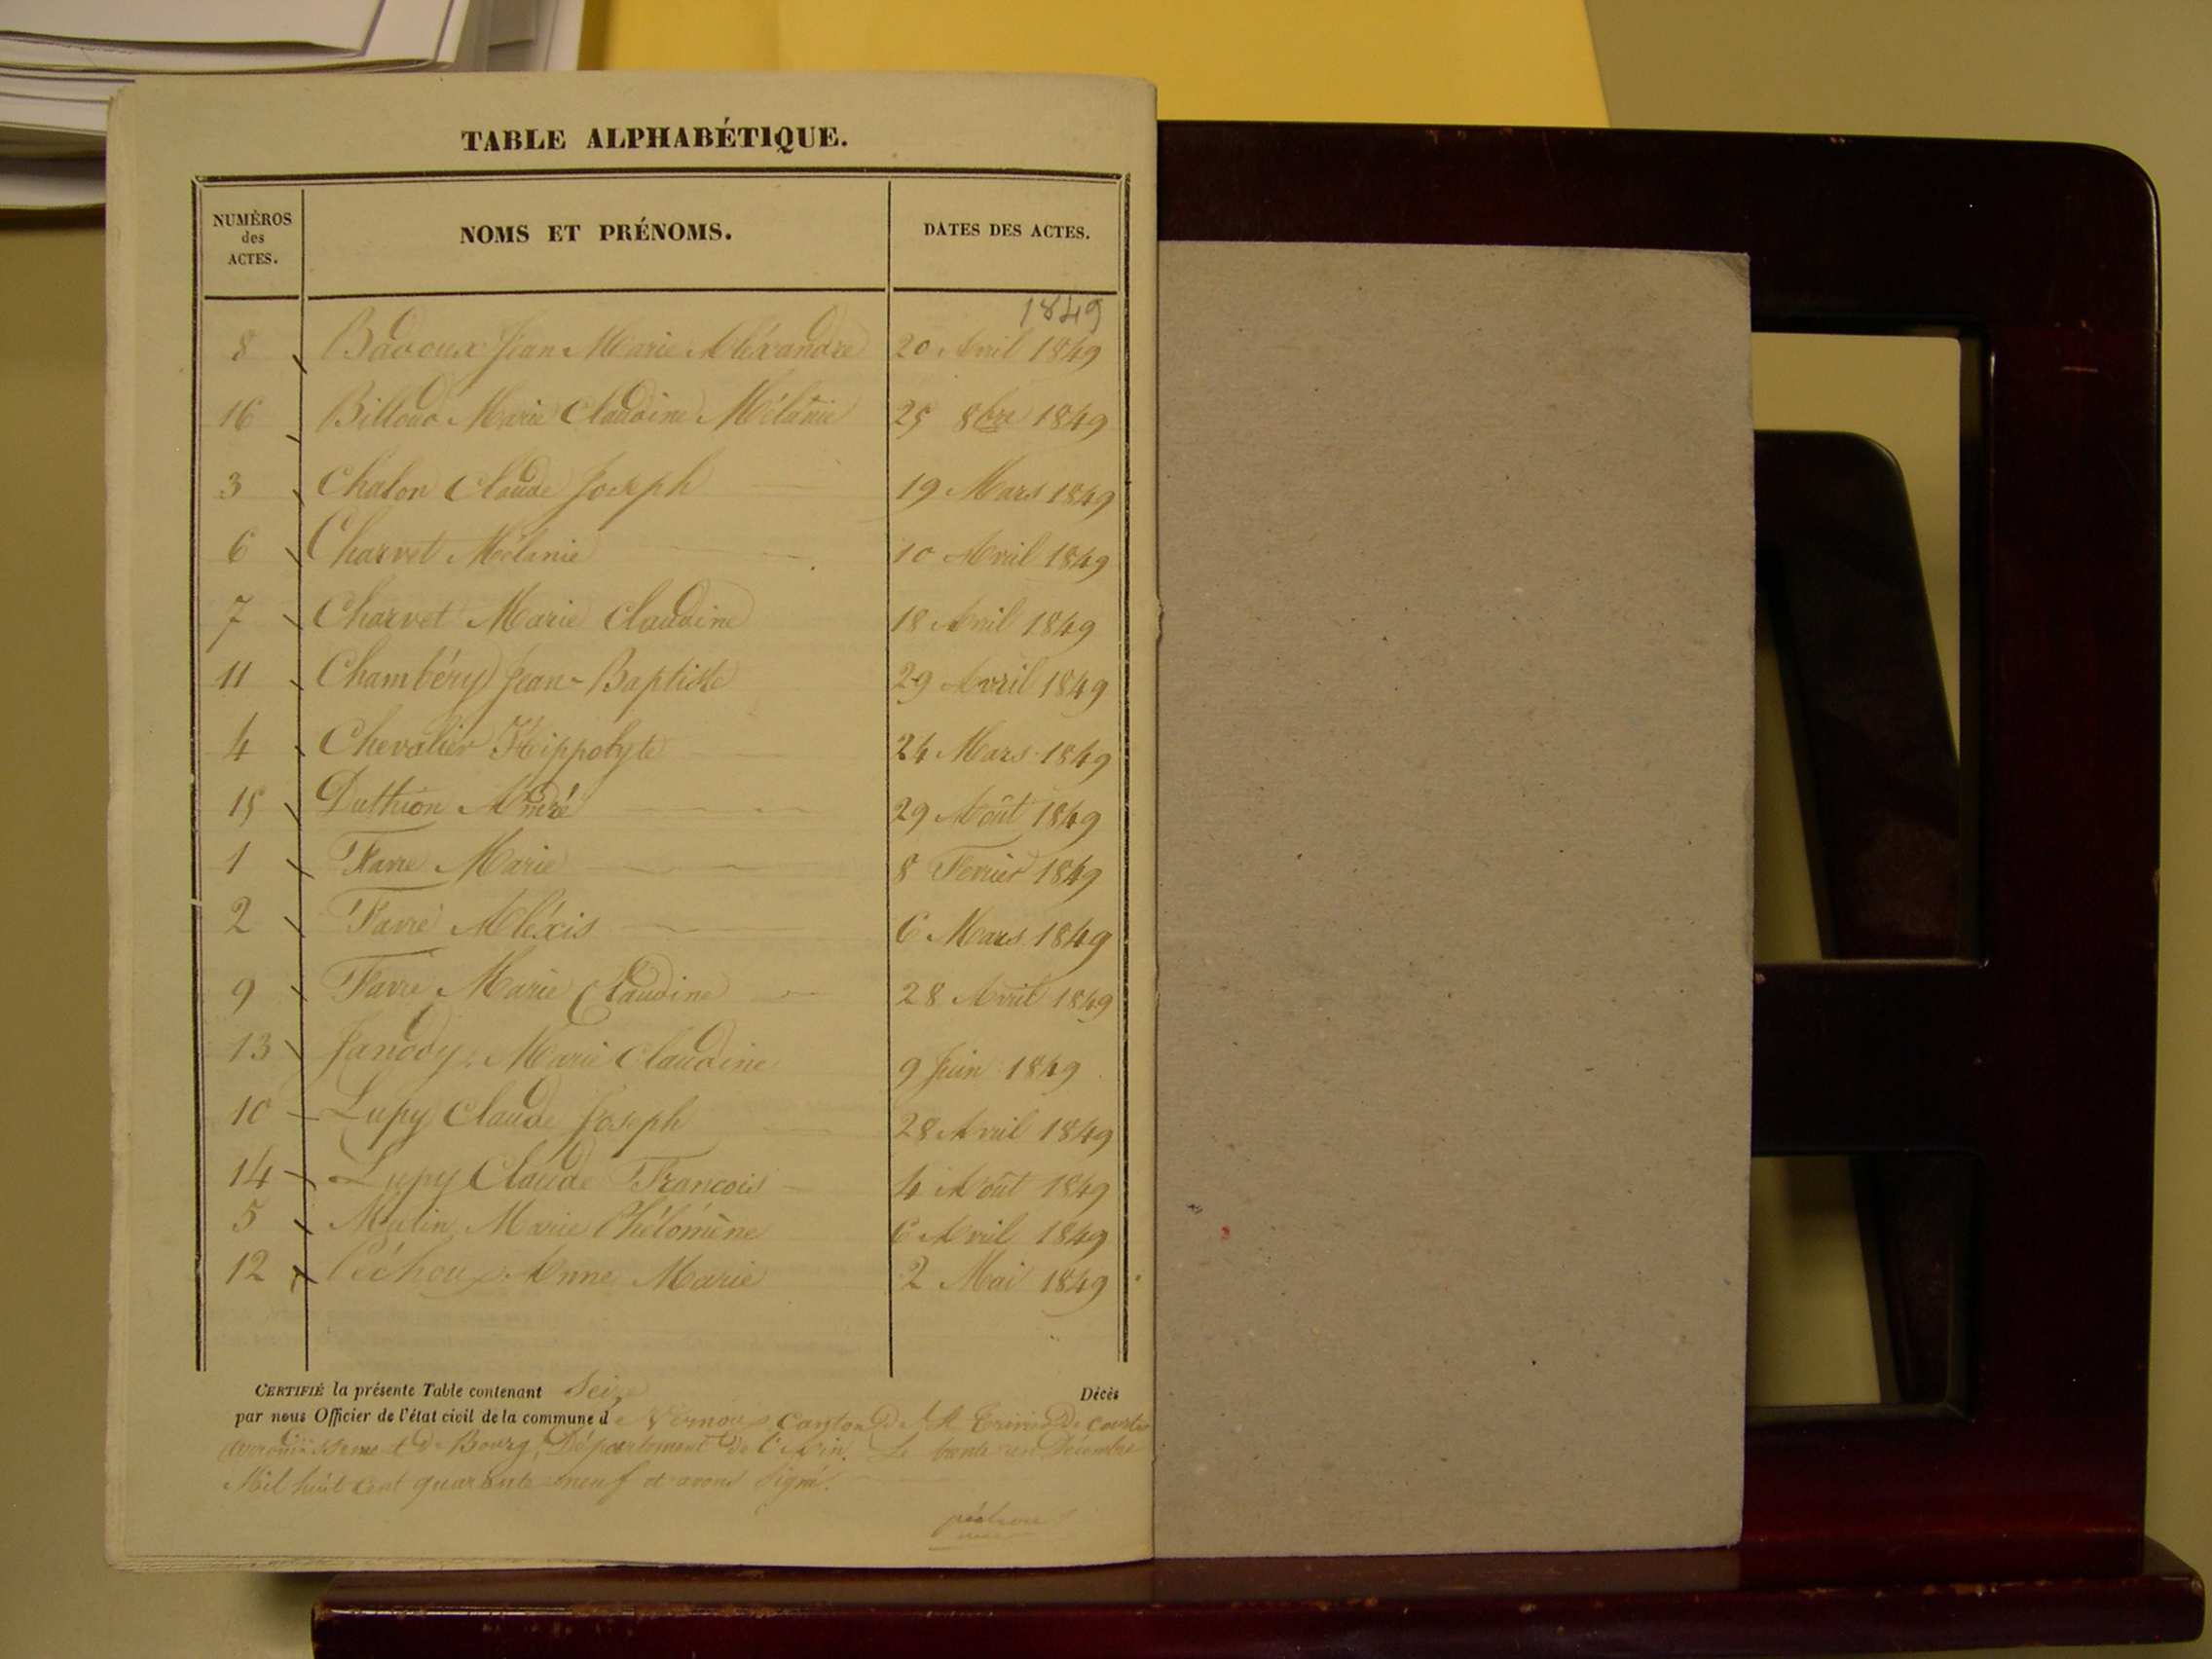 TABLE ALPHABÉTIQUE.
NUMÉROS
des
ACTES.
NOMS ET PRÉNOMS.
DATES DES ACTES.
1849
8 Badoux Jean Marie Aléxandre 20 Avril 1849
16 Billoud Marie Claudine Mélanie 25 8bre 1849
3 Chalon Claude Joseph 19 Mars 1849
6 Charvet Mélanie 10 Avril 1849
7 Charvet Marie Claudine 18 Avril 1849
11 Chambéry Jean-Baptiste 29 Avril 1849
4 Chevalier Hippolyte 24 Mars 1849
15 Duthion André 29 Août 1849
1 Favre Marie 8 Fevrier 1849
2 Favre Aléxis 6 Mars 1849
9 Favre Marie Claudine 28 Avril 1849
13 Janody Marie Claudine 9 Juin 1849
10 Lupy Claude Joseph 28 Avril 1849
14 Lupy Claude Francois 4 Août 1849
5 Marie Phélomène 6 Avril 1849
12 Péchoux Anne Marie 2 Mai 1849
CERTIFIÉ la présente Table contenant Seize Décès
par nous Officier de l'état civil de la commune de Vernoux Canton de St Trivier de Courtes
arrondissement de Bourg, Département de l'Ain. Le trente un Décembre
Mil huit cent quarante neuf et avons Signé.